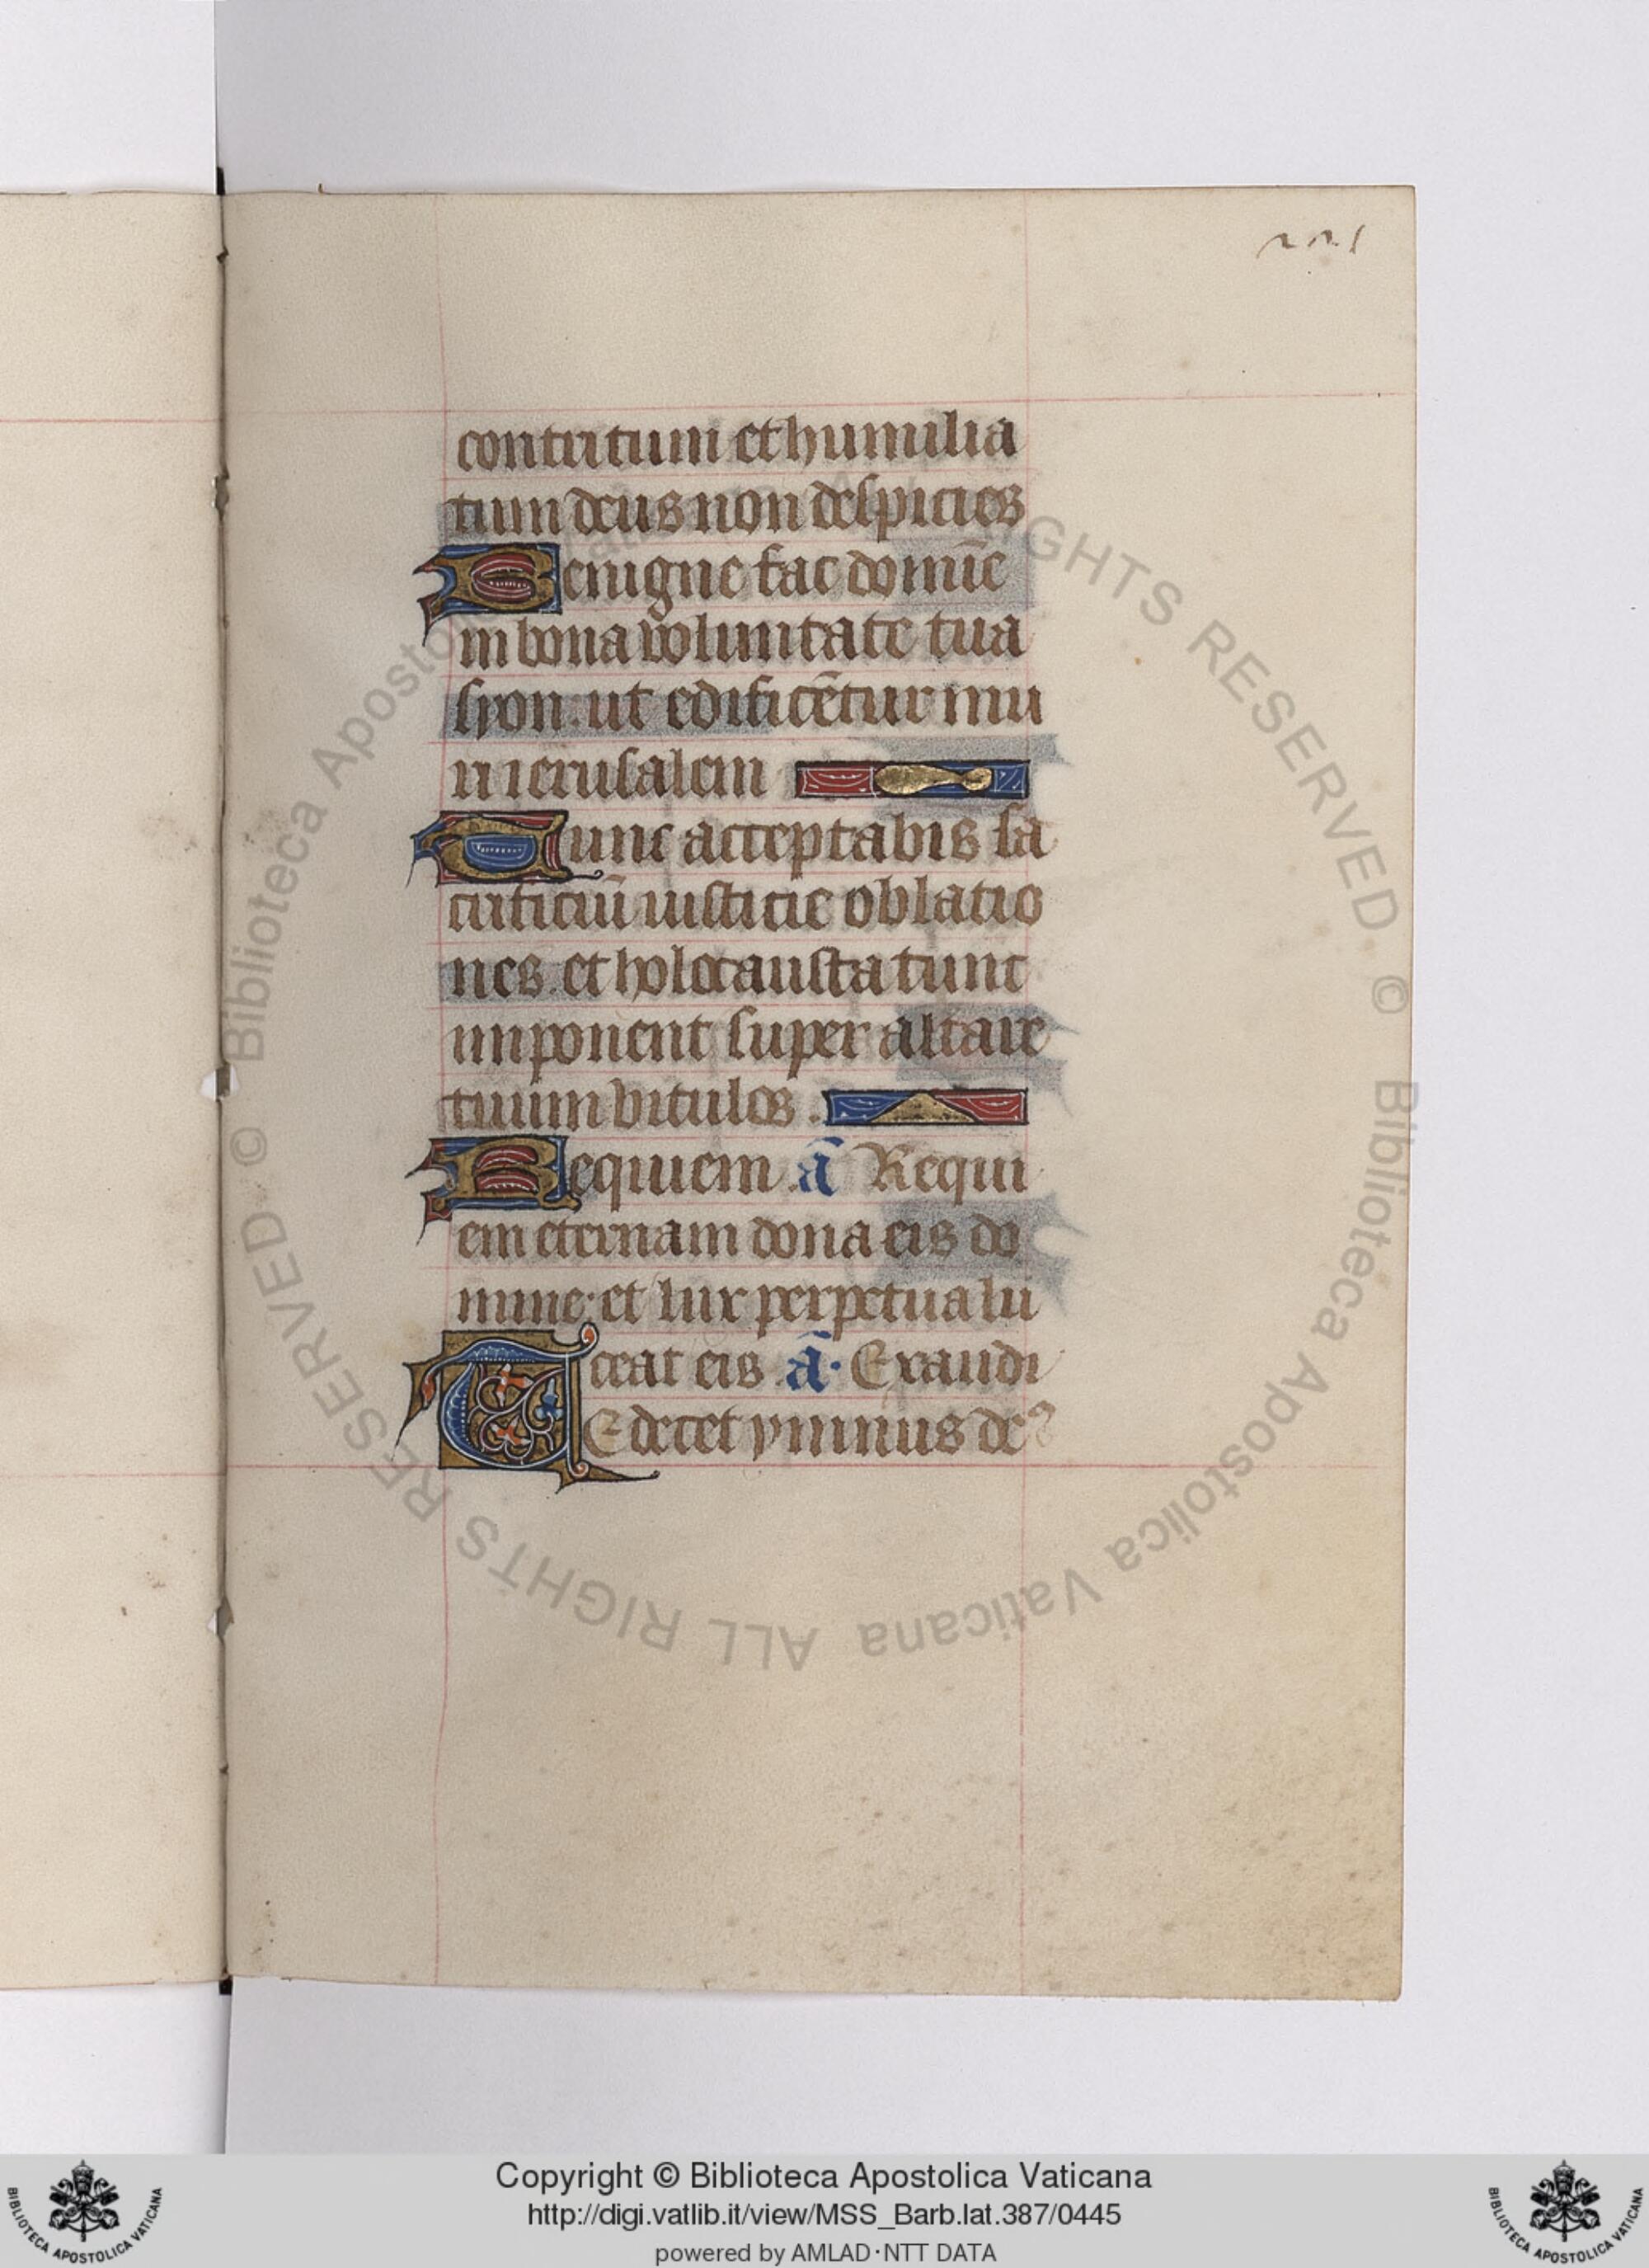 221
contritum et humilia
tum deus non despicies
Benigne fac domīe
in bona voluntate tua
syon. ut edificētur mu
ri ierusalem
Tunc acceptabis sa
crificiū iusticie oblatio
nes. et holocausta tunc
imponent super altare
tuum vitulos.
Requiem. ā Requi
em eternam dona eis do
mine. et lux perpetua lu
ceat eis. ā. Exaudi
TE decet ymnus deꝰ
© Biblioteca Apostolica Vaticana ALL RIGHTS RESERVED
© Biblioteca Apostolica Vaticana ALL RIGHTS RESERVED
Copyright © Biblioteca Apostolica Vaticana
http://digi.vatlib.it/view/MSS_Barb.lat.387/0445
powered by AMLAD·NTT DATA
BIBLIOTECA APOSTOLICA VATICANA
BIBLIOTECA APOSTOLICA VATICANA